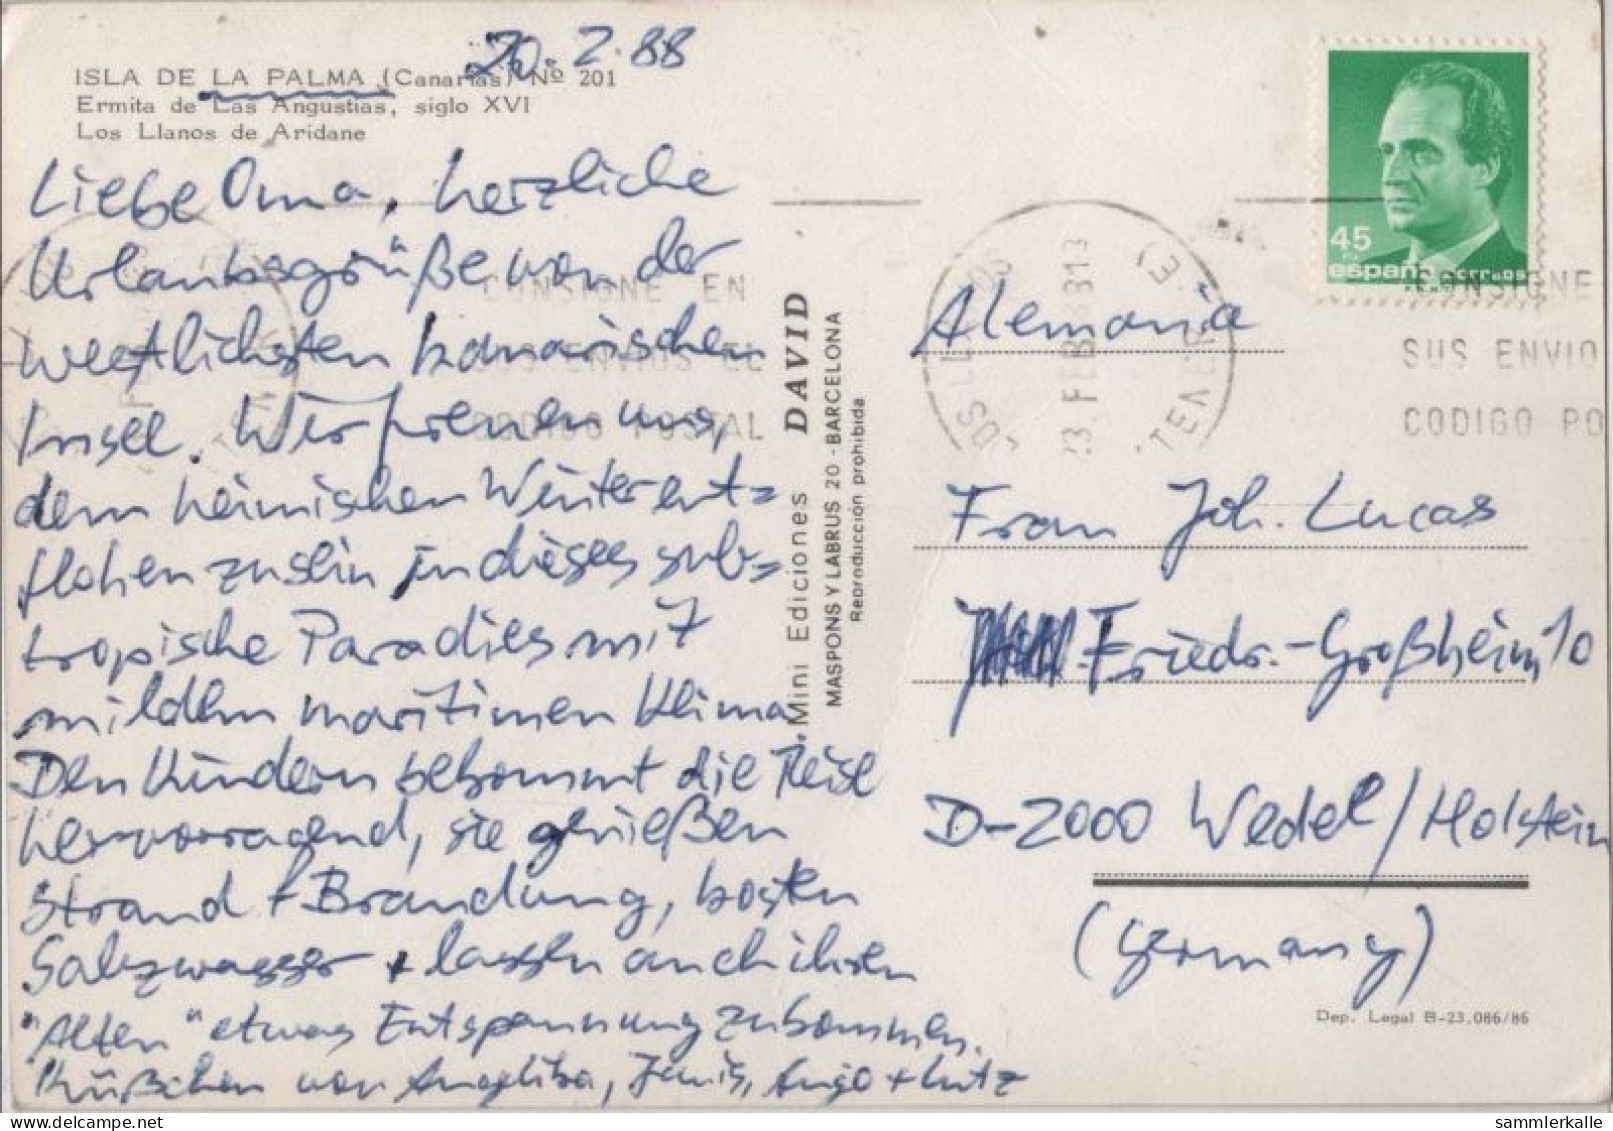 20.2.88
ISLA DE LA PALMA (Canarias) Nº 201
Ermita de Las Angustias, siglo XVI
Los Llanos de Aridane
Liebe Oma, herzliche
Urlaubsgrüße von der
westlichsten kanarischen
Insel. Wir freuen uns,
dem heimischen Winter ent=
flohen zu sein in dieses sub=
tropische Paradies mit
milden maritimen Klima.
Den Kindern bekommt die Reise
hervorragend, sie genießen
Strand + Brandung, kosten
Salzwasser + lassen auch ihren
"Alten" etwas Entspannung zukommen.
Küßchen von Angelika, Janis, Ingo + Lutz
Mini Ediciones DAVID
MASPONS Y LABRUS 20 - BARCELONA
Reproducción prohibida
CONSIGNE EN
SUS ENVIOS EL
CODIGO POSTAL
45
españa correos
CONSIGNE
SUS ENVIO
CODIGO PO
Alemania
Frau Joh. Lucas
Friedr.-Großheim 10
D-2000 Wedel/Holstein
(Germany)
Dep. Legal B-23.086/86
sammlerkalle.com